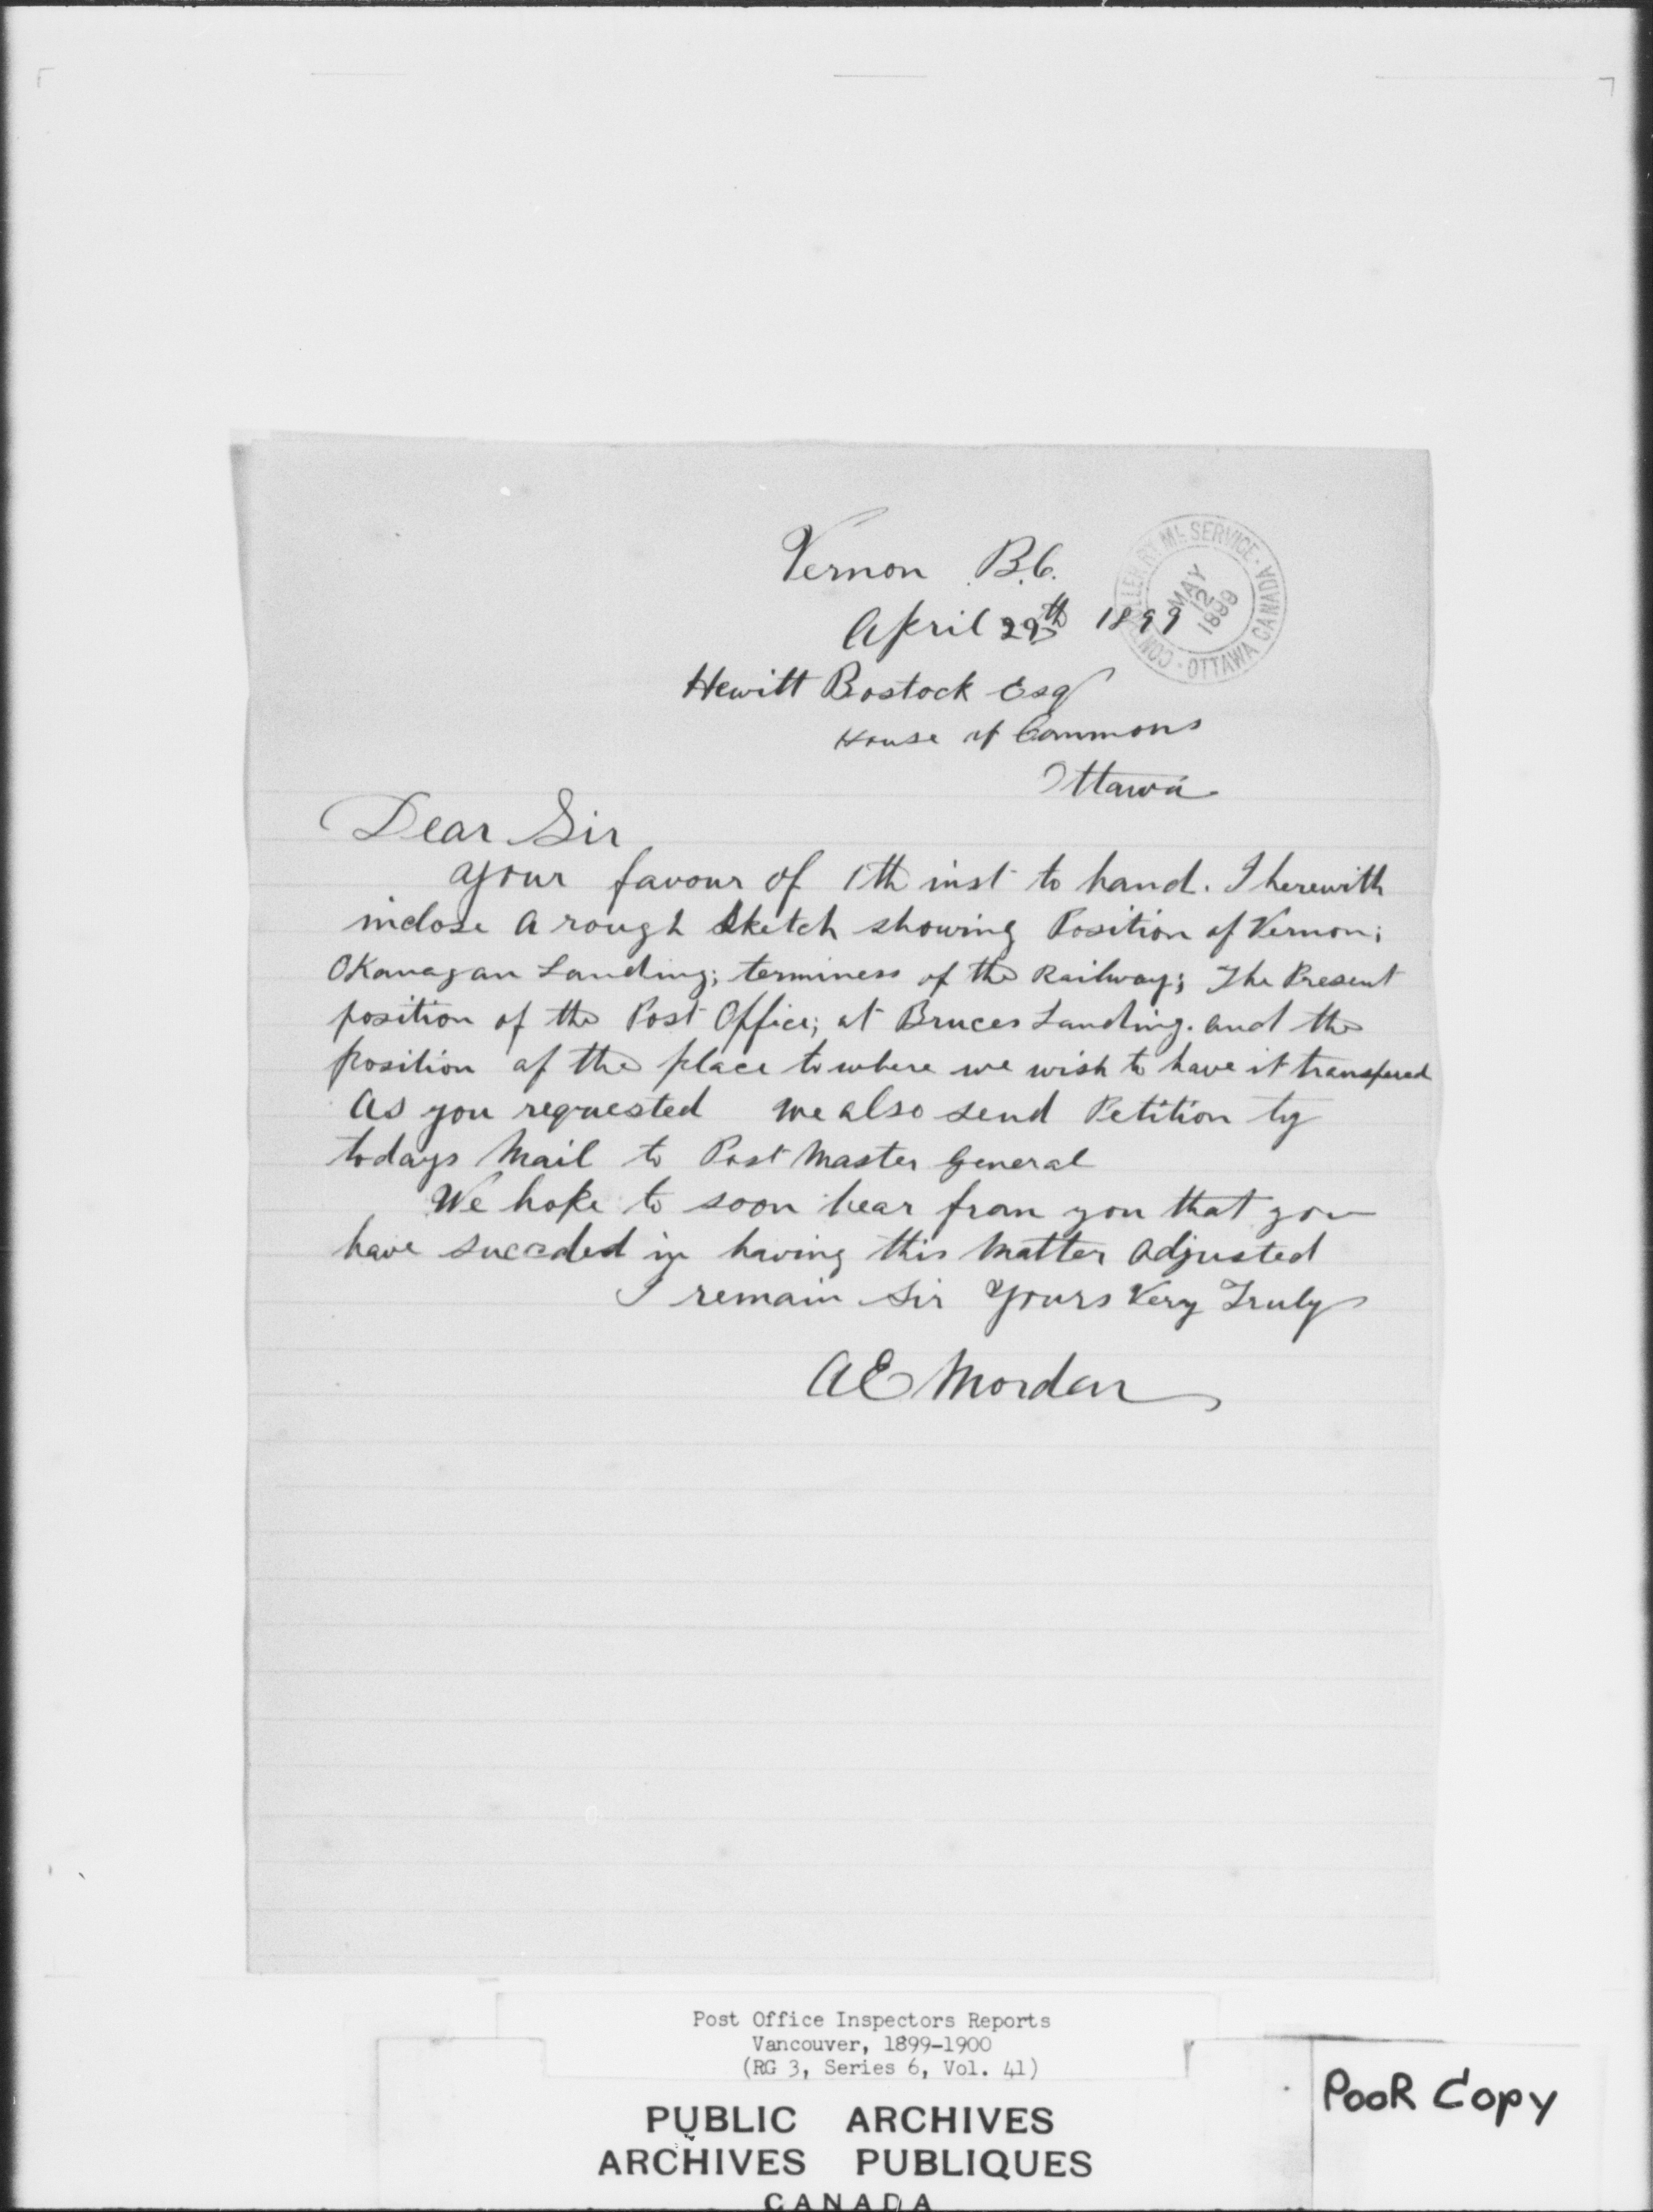 Vernon B.C.
April 29th 1899
CONTROLLER RY ML SERVICE · OTTAWA CANADA
MAY
12
1899
Hewitt Bostock Esq
House of Commons
Ottawa
Dear Sir
Your favour of th inst to hand. I herewith
inclose a rough sketch showing Position of Vernon;
Okanagan Landing; terminess of the Railway; The Present
position of the Post Office; at Bruces Landing. and the
position of the place to where we wish to have it transfered
As you requested we also send Petition by
todays Mail to Post Master General
We hope to soon hear from you that you
have succeded in having this Matter Adjusted
I remain Sir Yours Very Truly
A E Morden
Post Office Inspectors Reports
Vancouver, 1899-1900
(RG 3, Series 6, Vol. 41)
PUBLIC ARCHIVES
ARCHIVES PUBLIQUES
CANADA
POOR COPY